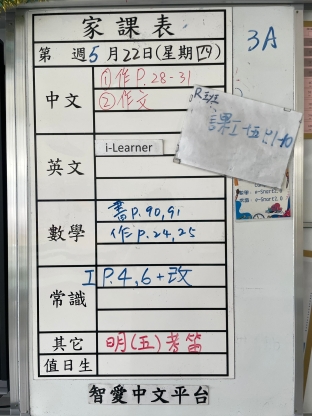 家課表
3A
第 週5月22日(星期四)
中文
①作P.28-31
②作文
R班
課工-五P.1-10
英文
i-Learner
數學
書P.90,91
作P.24,25
常識
工P.4,6+改
其它
明(五)考笛
值日生
智愛中文平台